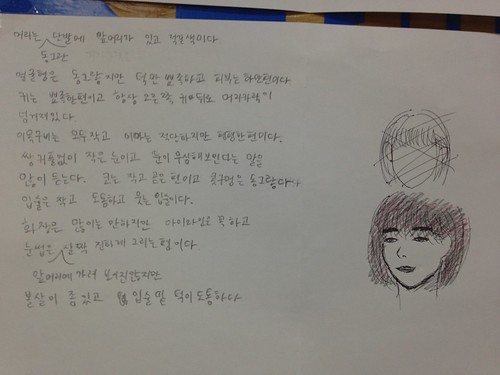 머리는 단발에 앞머리가 있고 적갈색이다
동그란
얼굴형은 동그랗지만 턱만 뾰족하고 피부는 하얀편이다
귀는 뾰족한편이고 항상 오른쪽 귀뒤로 머리카락이
넘겨져있다
이목구비는 모두 작고 이마는 적당하지만 평평한 편이다.
쌍커풀없이 작은 눈이고 눈이 우성해보인다는 말을
많이 듣는다. 코는 작고 곧은 편이고 콧구멍은 동그랗다
입술은 작고 도톰하고 붉은 입술이다.
화장은 많이는 안하지만 아이라인은 꼭 하고
눈썹은 살짝 진하게 그리는 편이다
앞머리에 가려 보여진않지만
볼살이 좀 있고 입술 밑 턱이 도톰하다